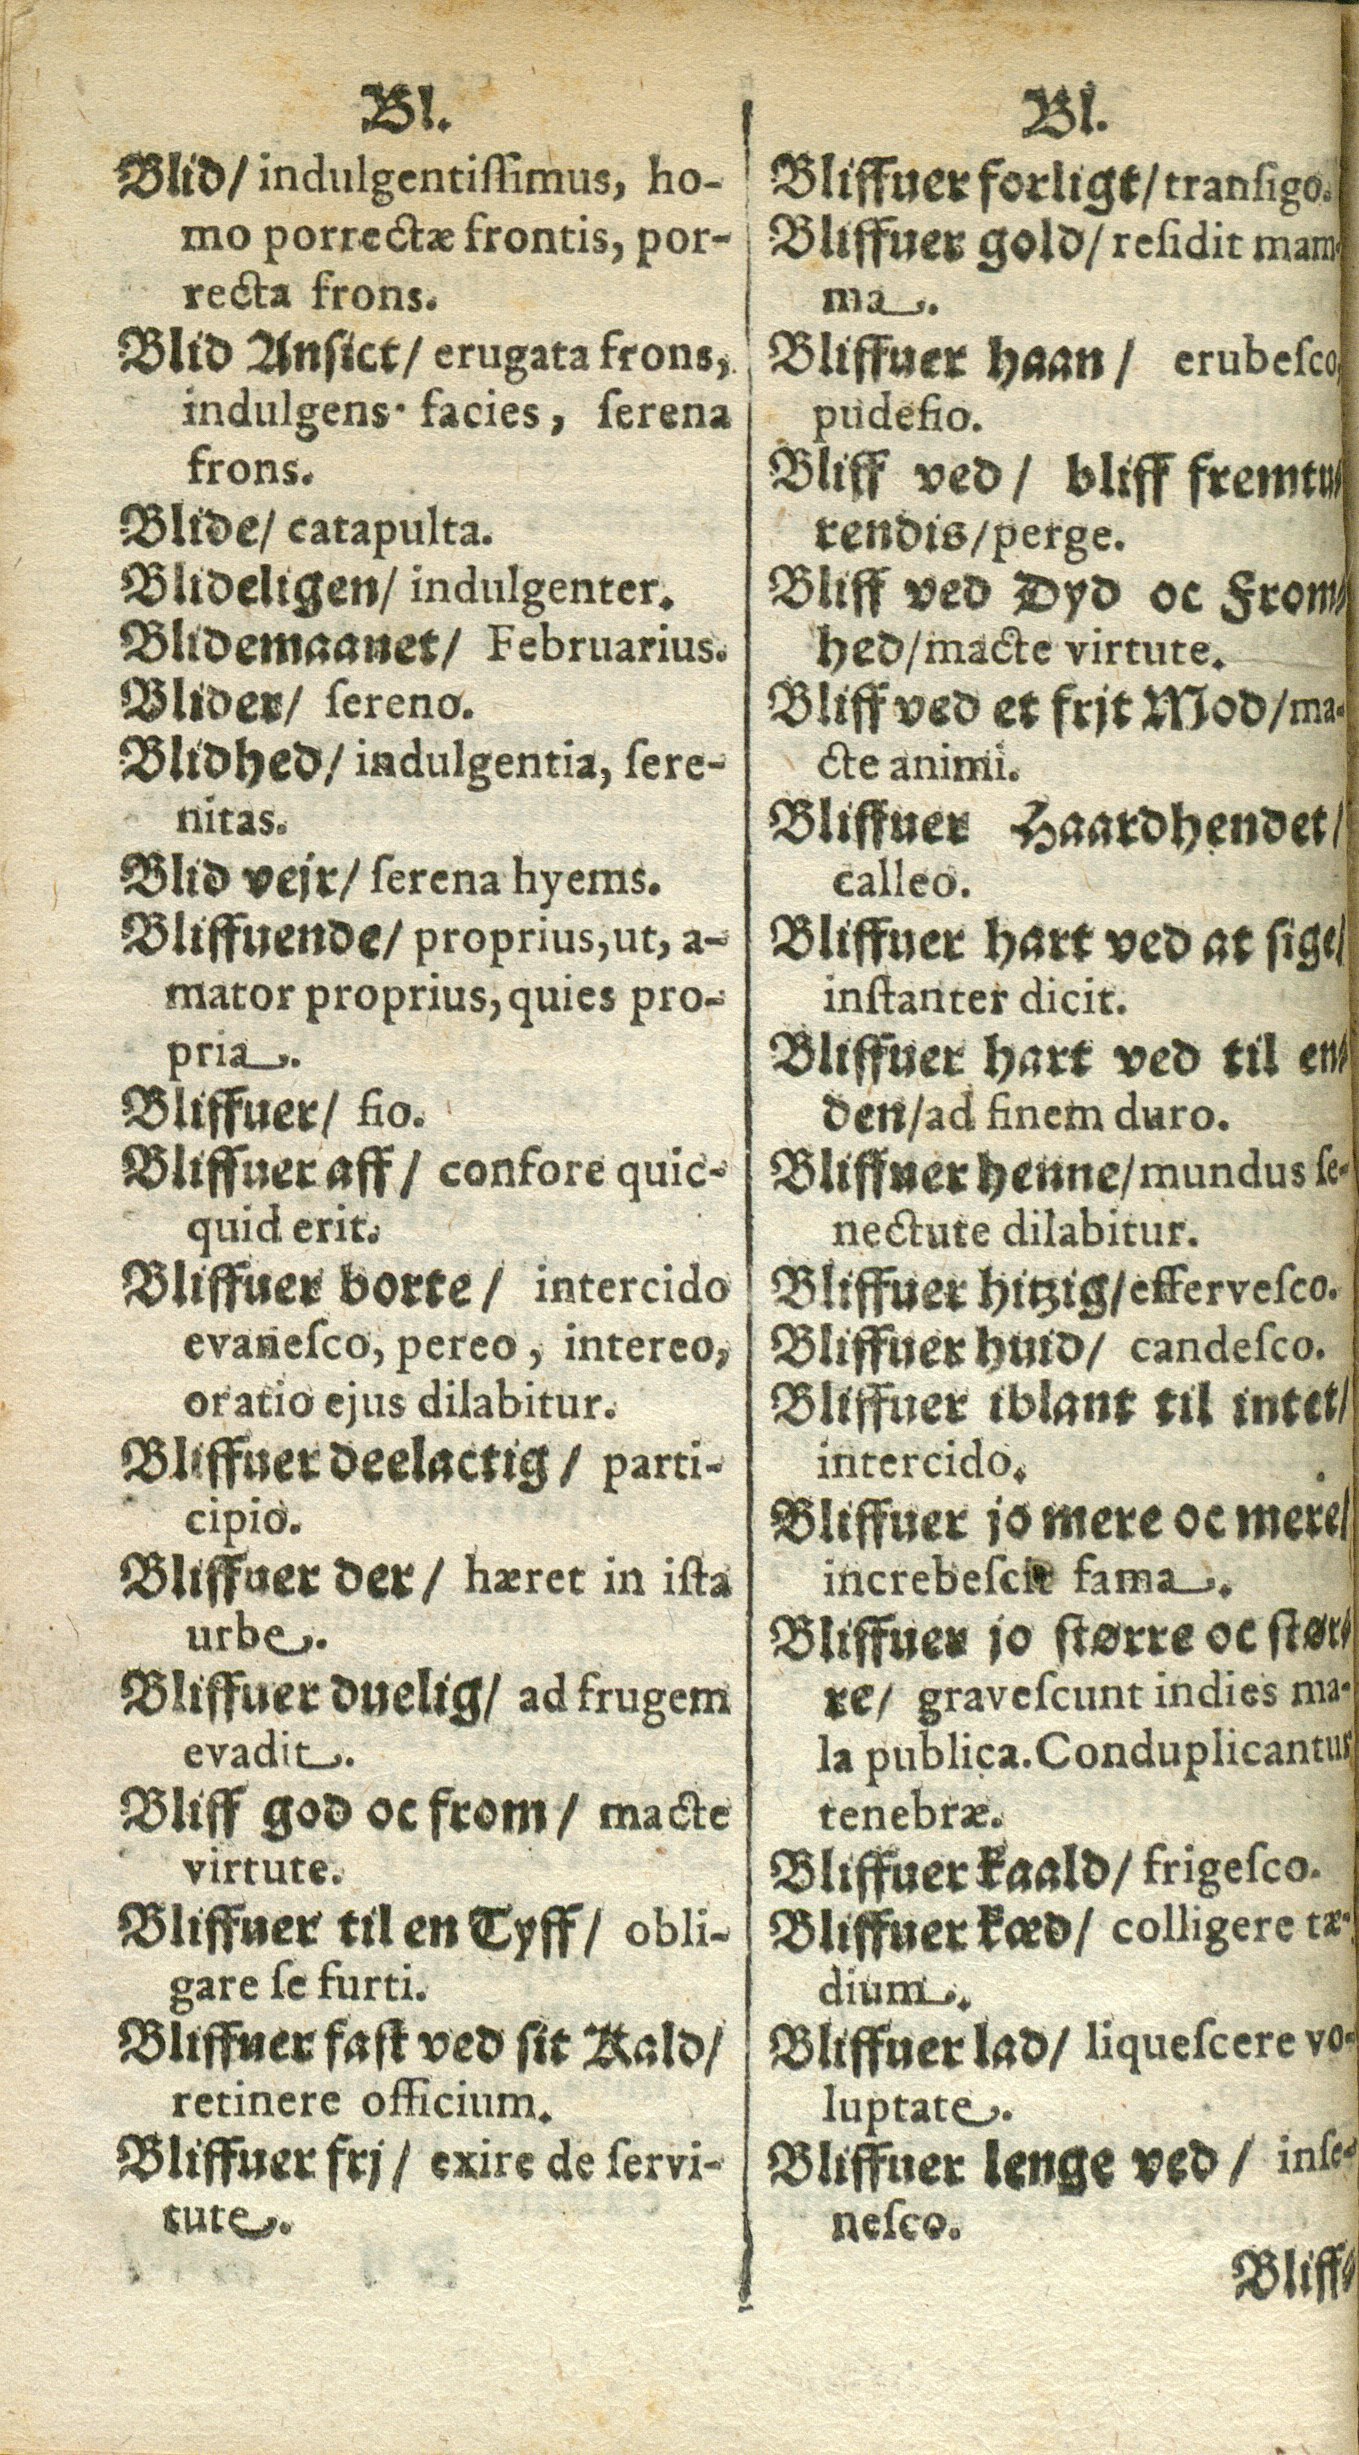 Bl.
Blid/ indulgentiſſimus, ho-
mo porrectæ frontis, por-
recta frons.
Blid Anſict/ erugata frons,
indulgens facies, ſerena
frons.
Blide/ catapulta.
Blideligen/ indulgenter.
Blidemaanet/ Februarius.
Blider/ ſereno.
Blidhed/ indulgentia, ſere-
nitas.
Blid vejr/ ſerena hyems.
Bliffuende/ proprius, ut, a-
mator proprius, quies pro-
pria.
Bliffuer/ fio.
Bliffuer aff/ confore quic-
quid erit.
Bliffuer borte/ intercido
evaneſco, pereo, intereo,
oratio ejus dilabitur.
Bliffuer deelactig/ parti-
cipio.
Bliffuer der/ hæret in iſta
urbe.
Bliffuer duelig/ ad frugem
evadit.
Bliff god oc from/ macte
virtute.
Bliffuer til en Tyff/ obli-
gare ſe furti.
Bliffuer faſt ved ſit Kald/
retinere officium.
Bliffuer frj/ exire de ſervi-
tute.
Bl.
Bliffuer forligt/ tranſigo.
Bliffuer gold/ reſidit mam-
ma.
Bliffuer haan/ erubeſco,
pudefio.
Bliff ved/ bliff fremtu-
rendis/ perge.
Bliff ved Dyd oc From-
hed/ macte virtute.
Bliff ved et frjt Mod/ ma-
cte animi.
Bliffuer Haardhendet/
calleo.
Bliffuer hart ved at ſige/
inſtanter dicit.
Bliffuer hart ved til en-
den/ ad finem duro.
Bliffuer henne/ mundus ſe-
nectute dilabitur.
Bliffuer hitzig/ efferveſco.
Bliffuer huid/ candeſco.
Bliffuer iblant til intet/
intercido.
Bliffuer jo mere oc mere/
increbeſcit fama.
Bliffuer jo ſtørre oc ſtør-
re/ graveſcunt indies ma-
la publica. Conduplicantur
tenebræ.
Bliffuer kaald/ frigeſco.
Bliffuer kæd/ colligere tæ-
dium.
Bliffuer lad/ liqueſcere vo-
luptate.
Bliffuer lenge ved/ inſe-
neſco.
Bliff-